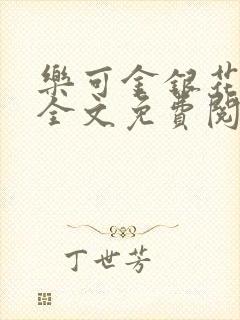 樂可金銀花
全文免費閱
丁世芳